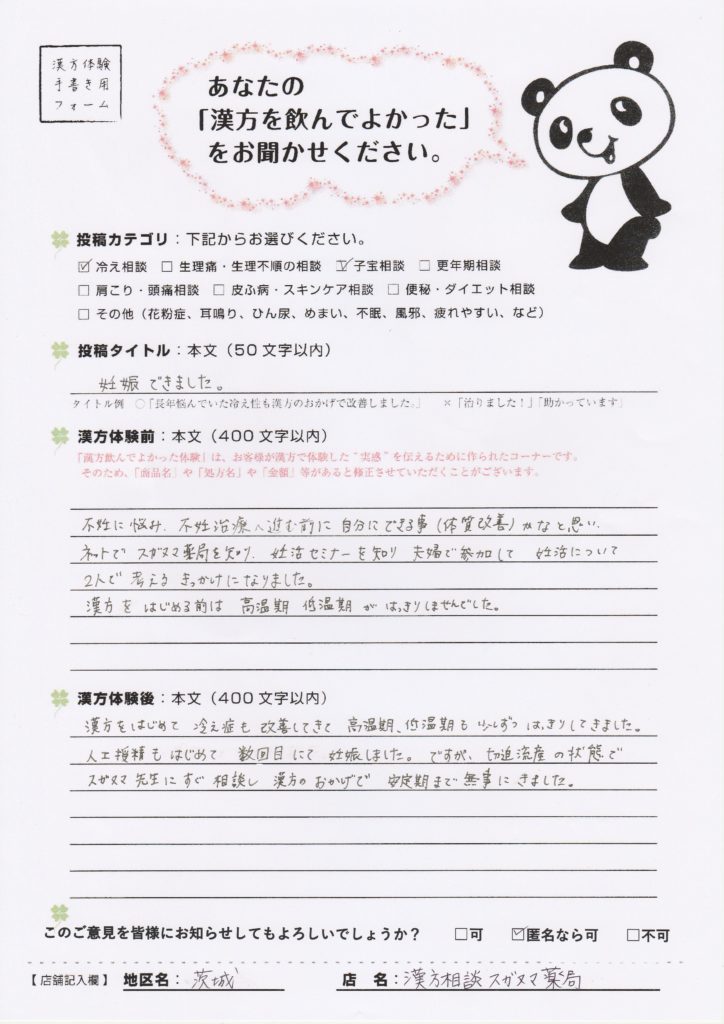 漢方体験
手書き用
フォーム
あなたの
「漢方を飲んでよかった」
をお聞かせください。
投稿カテゴリ：下記からお選びください。
☑ 冷え相談 □ 生理痛・生理不順の相談 ☑ 子宝相談 □ 更年期相談
□ 肩こり・頭痛相談 □ 皮ふ病・スキンケア相談 □ 便秘・ダイエット相談
□ その他（花粉症、耳鳴り、ひん尿、めまい、不眠、風邪、疲れやすい、など）
投稿タイトル：本文（50 文字以内）
妊娠できました。
タイトル例 ○「長年悩んでいた冷え性も漢方のおかげで改善しました。」 ×「治りました！」「助かっています」
漢方体験前：本文（400 文字以内）
「漢方飲んでよかった体験」は、お客様が漢方で体験した“実感”を伝えるために作られたコーナーです。
そのため、「商品名」や「処方名」や「金額」等があると修正させていただくことがございます。
不妊に悩み、不妊治療へ進む前に 自分にできる事（体質改善）かなと思い、
ネットで スガヌマ薬局を知り、妊活セミナーを知り 夫婦で参加して 妊活について
2人で 考える きっかけになりました。
漢方を はじめる前は 高温期 低温期 が はっきりしませんでした。
漢方体験後：本文（400 文字以内）
漢方をはじめて 冷え症も 改善してきて 高温期、低温期も 少しずつ はっきりしてきました。
人工授精も はじめて 数回目にて 妊娠しました。ですが、切迫流産の状態で
スガヌマ先生に すぐ 相談し 漢方の おかげで 安定期まで 無事に きました。
このご意見を皆様にお知らせしてもよろしいでしょうか？ □可 ☑匿名なら可 □不可
【店舗記入欄】 地区名：茨城 店 名：漢方相談 スガヌマ薬局